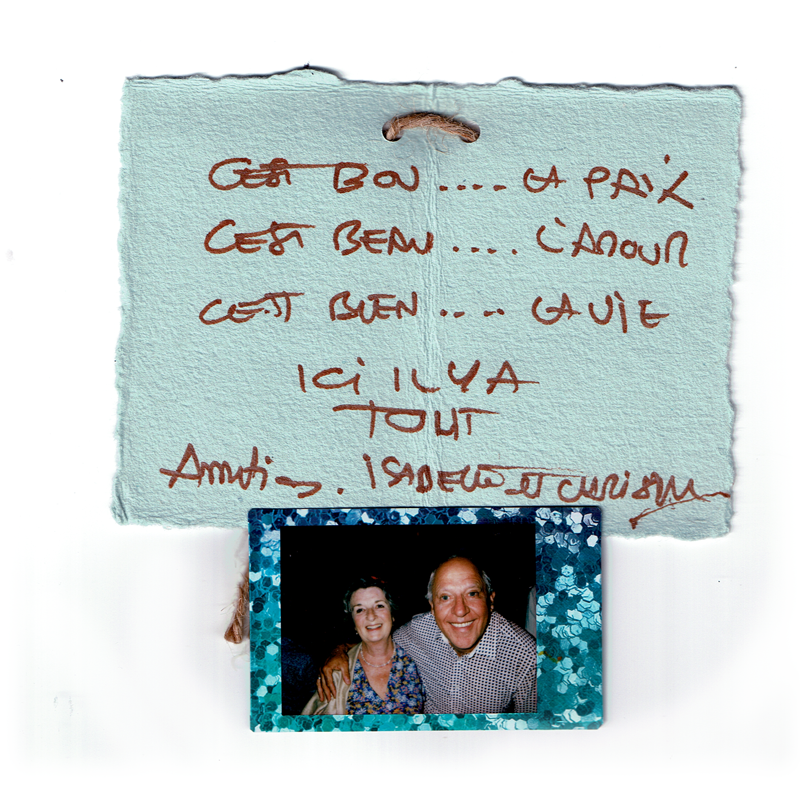 C'EST BON .... LA PAIX
C'EST BEAU .... L'AMOUR
C'EST BIEN .... LA VIE
ICI IL Y A
TOUT
Amitiés. ISABELLE ET CHRISTIAN